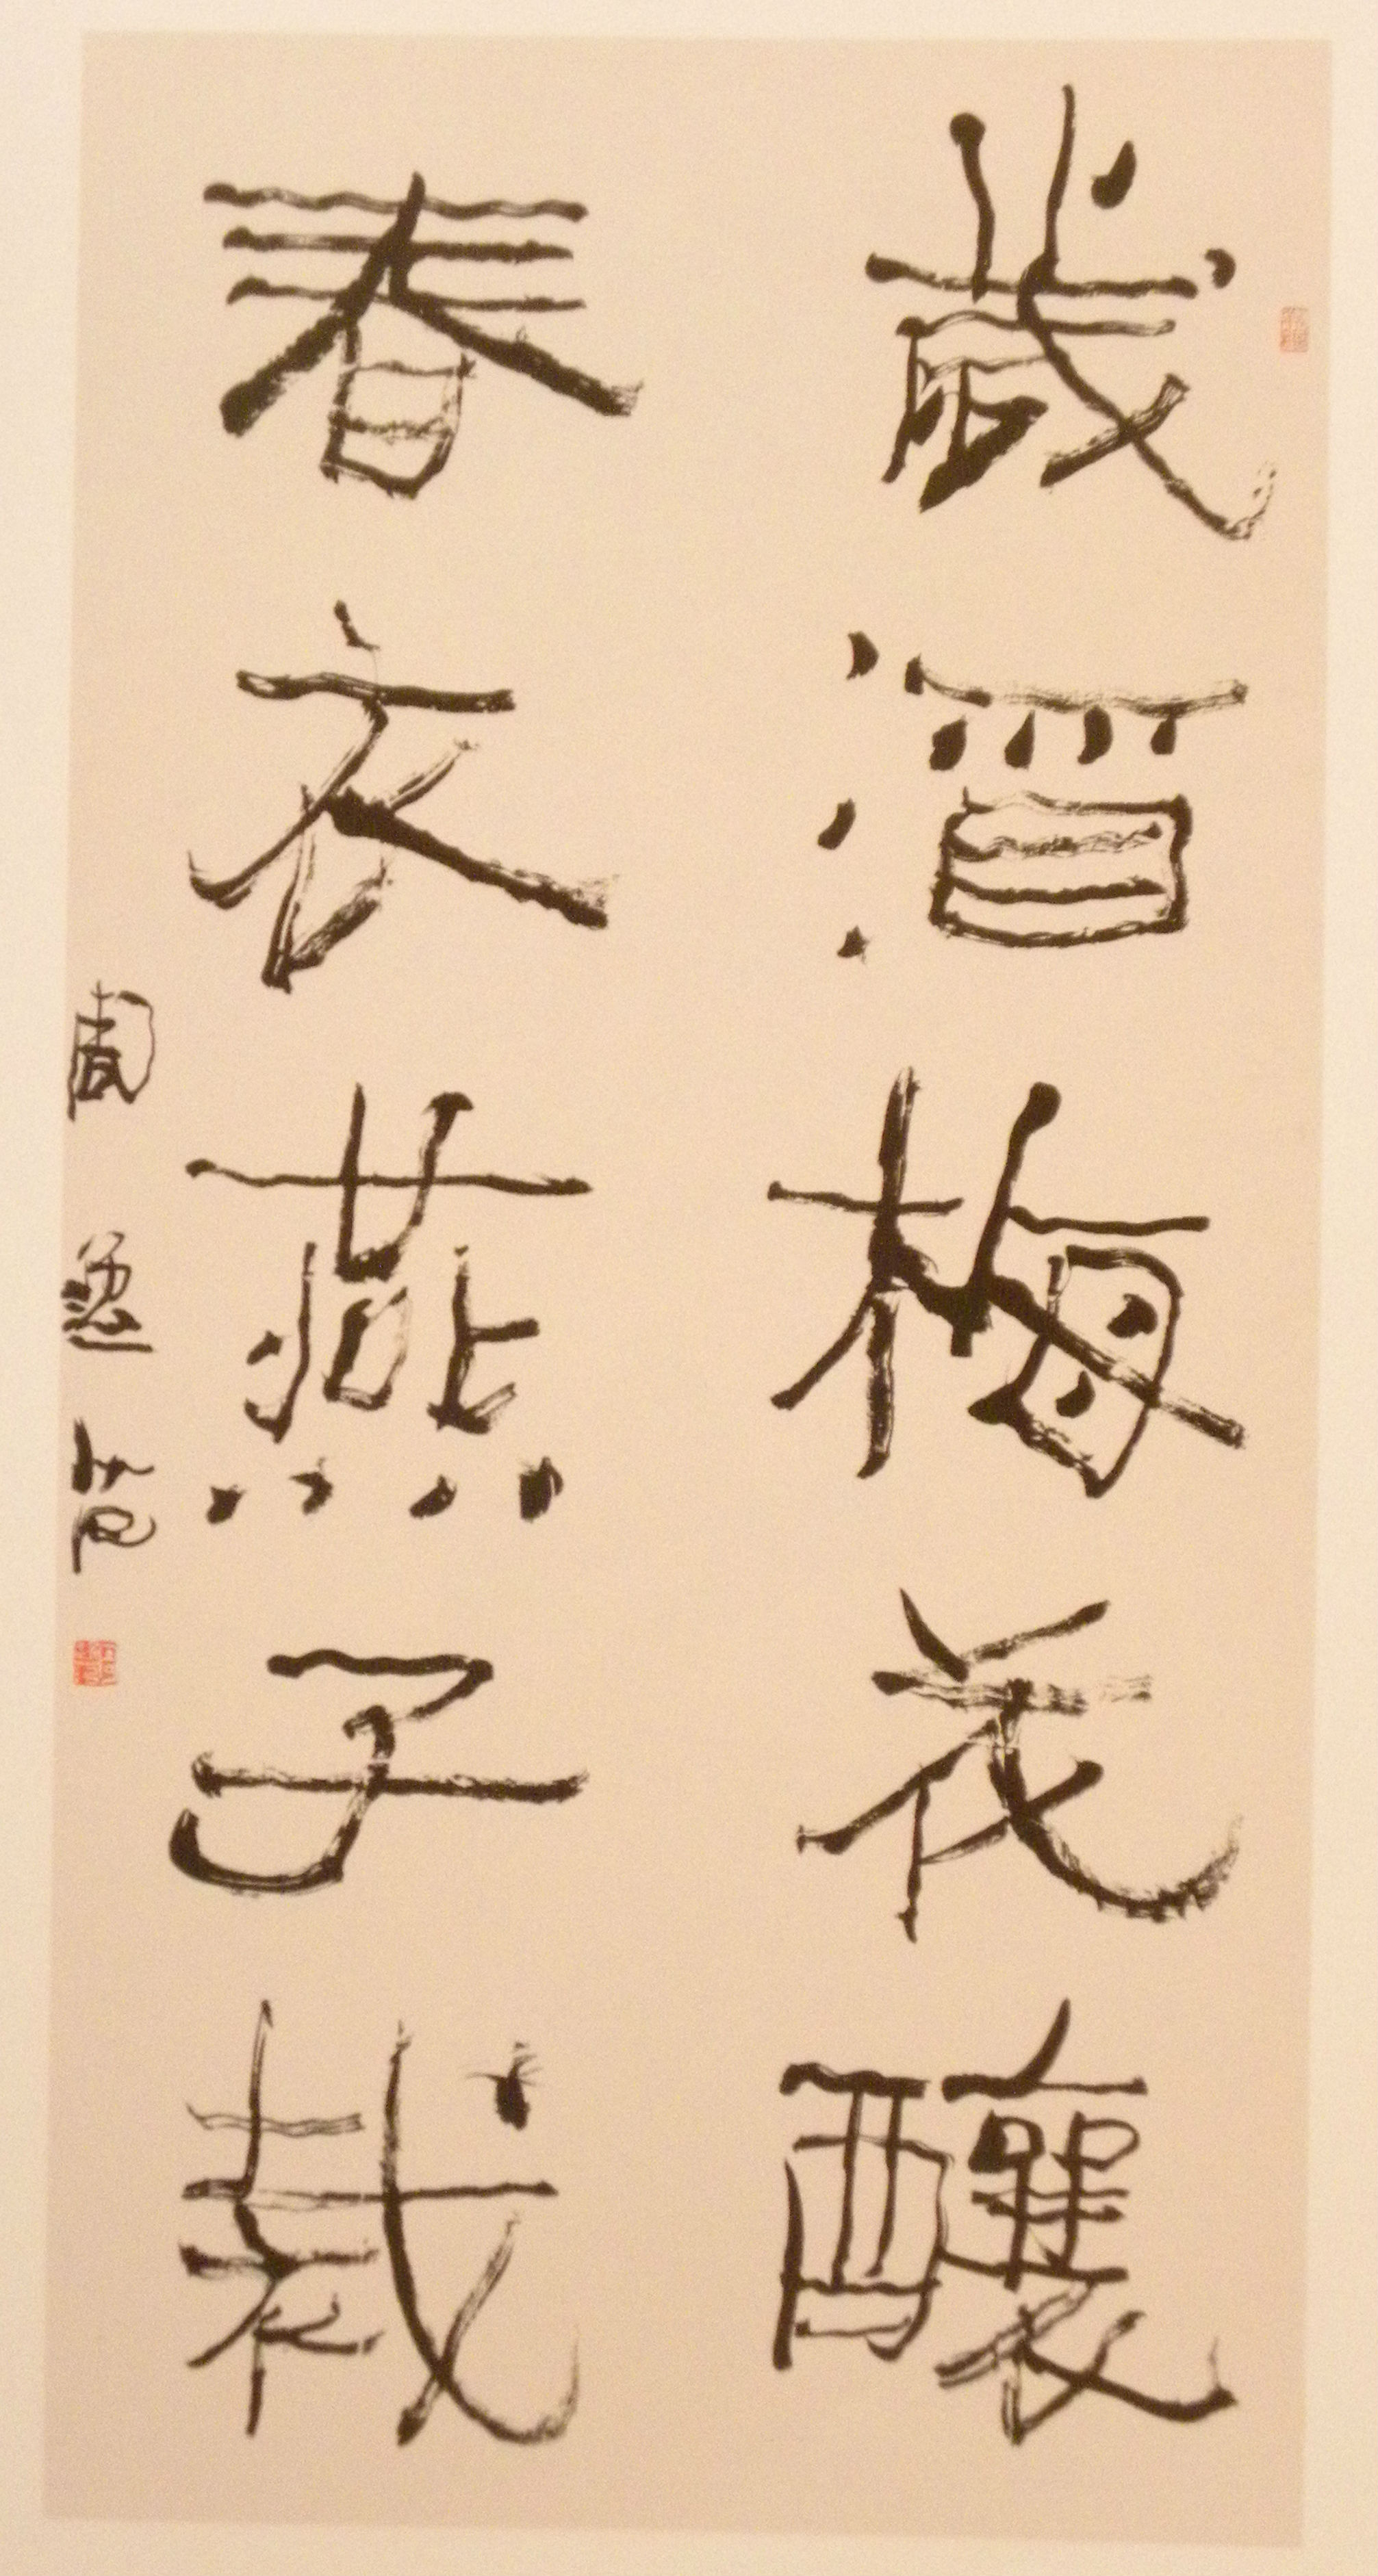 歲酒梅花釀
春衣燕子裁
周愚若